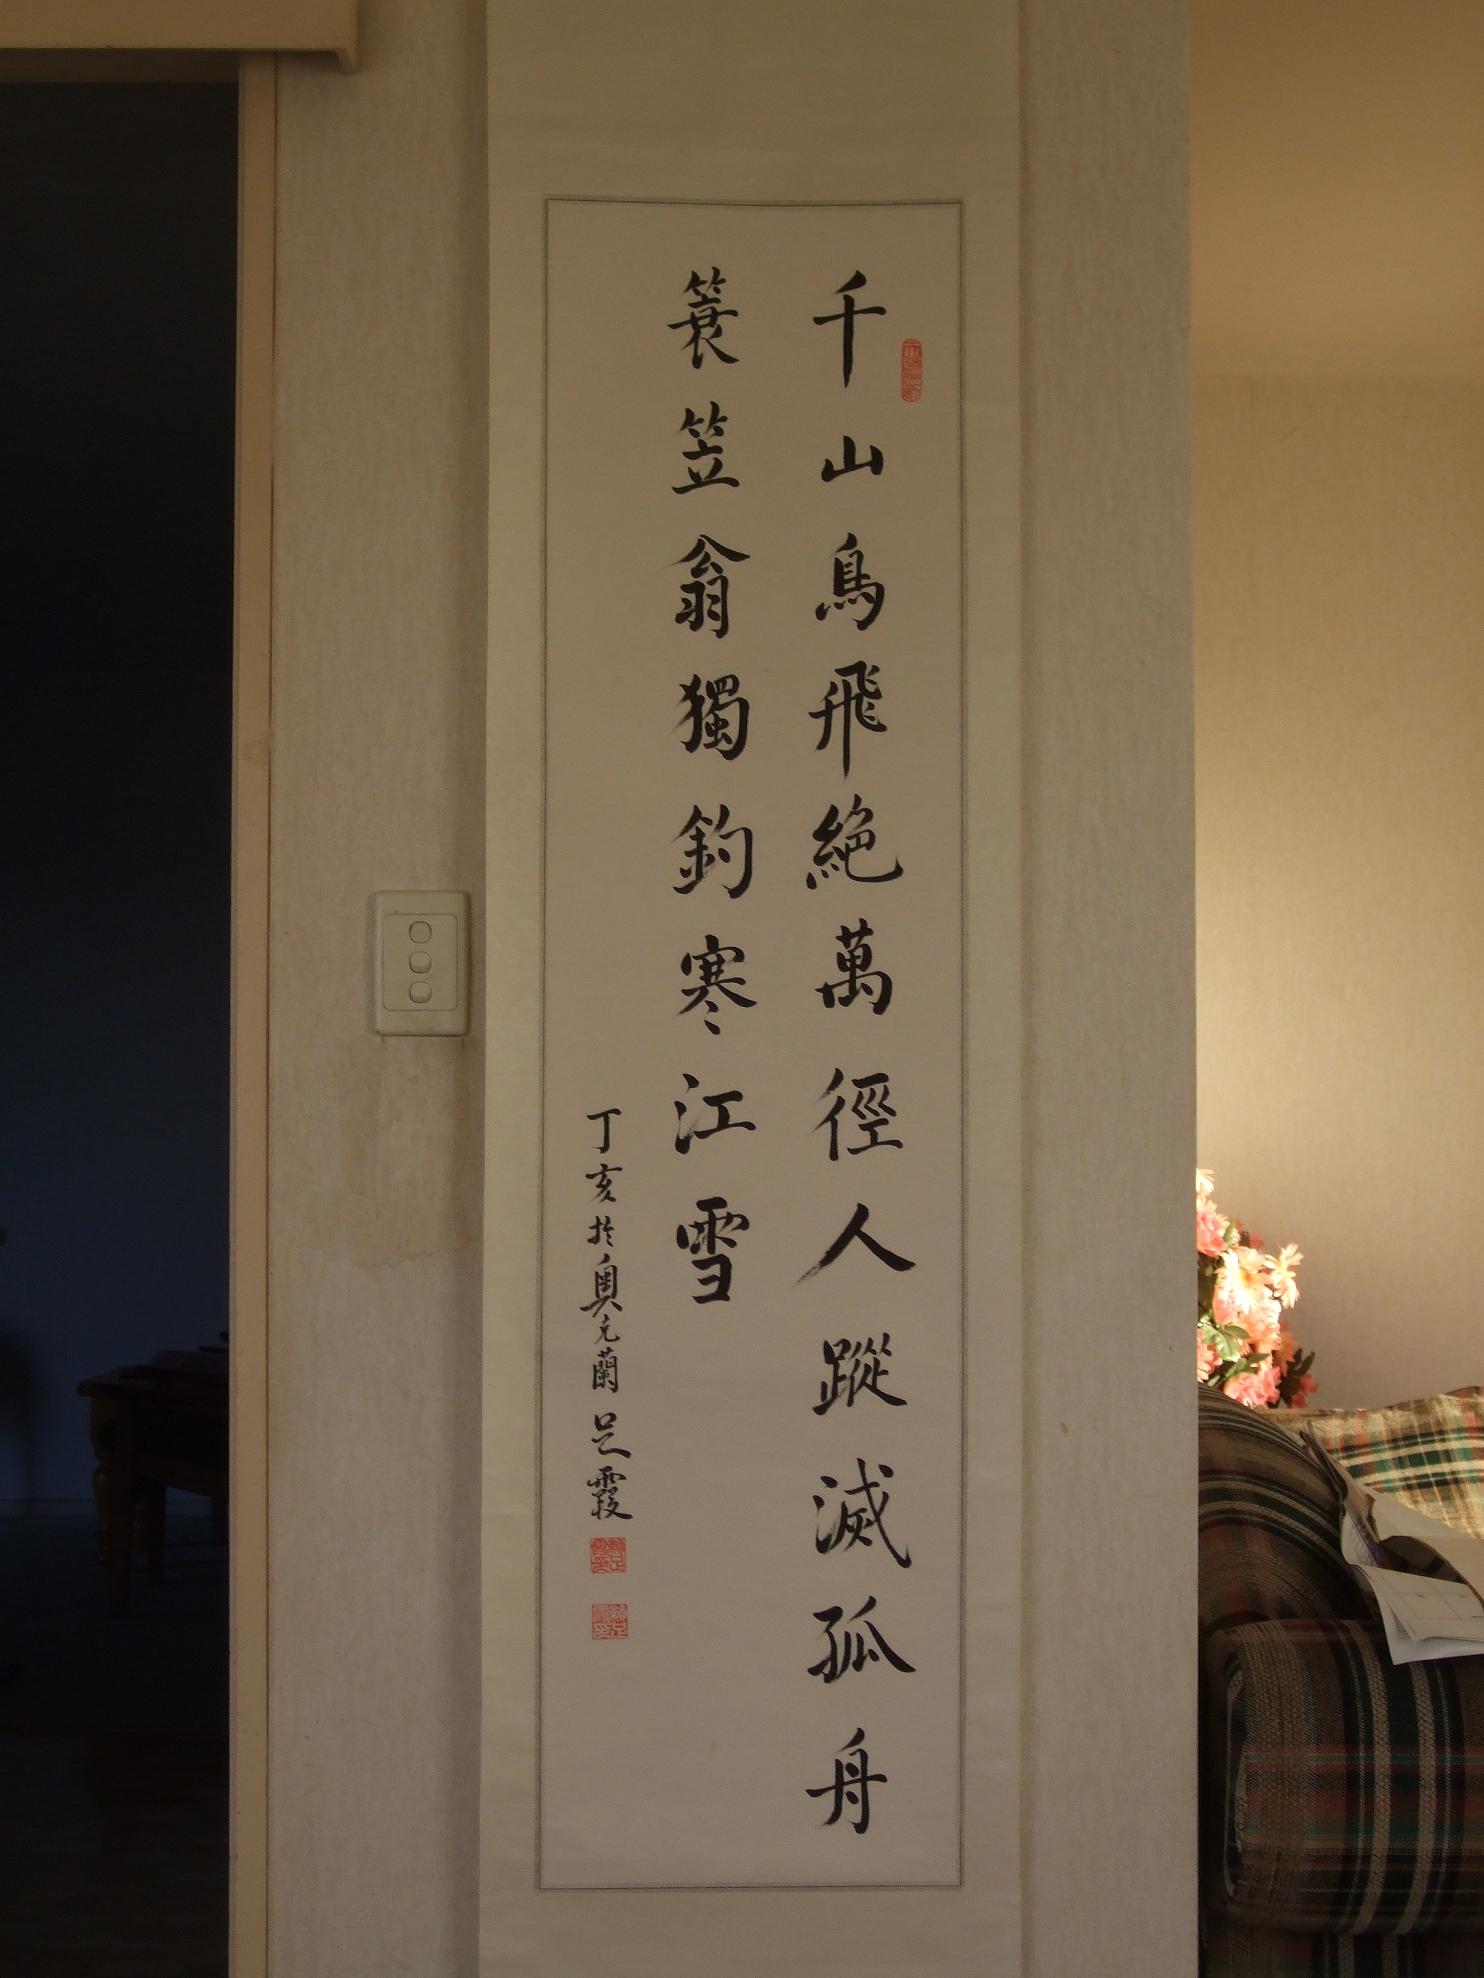 千山鳥飛絕萬徑人蹤滅孤舟
簑笠翁獨釣寒江雪
丁亥於奧克蘭足霞